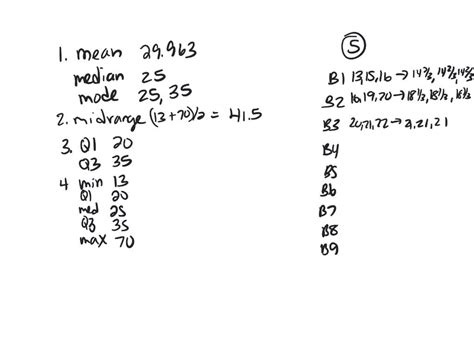 1. mean 29.963
median 25
mode 25, 35
2. midrange (13 + 70)/2 = 41.5
3. Q1 20
Q3 35
4 min 13
Q1 20
med 25
Q3 35
max 70
5
B1 13,15,16 → 14 2/3, 14 2/3, 14 2/3
B2 16,19,20 → 18 1/3, 18 1/3, 18 1/3
B3 20,21,22 → 21, 21, 21
B4
B5
B6
B7
B8
B9